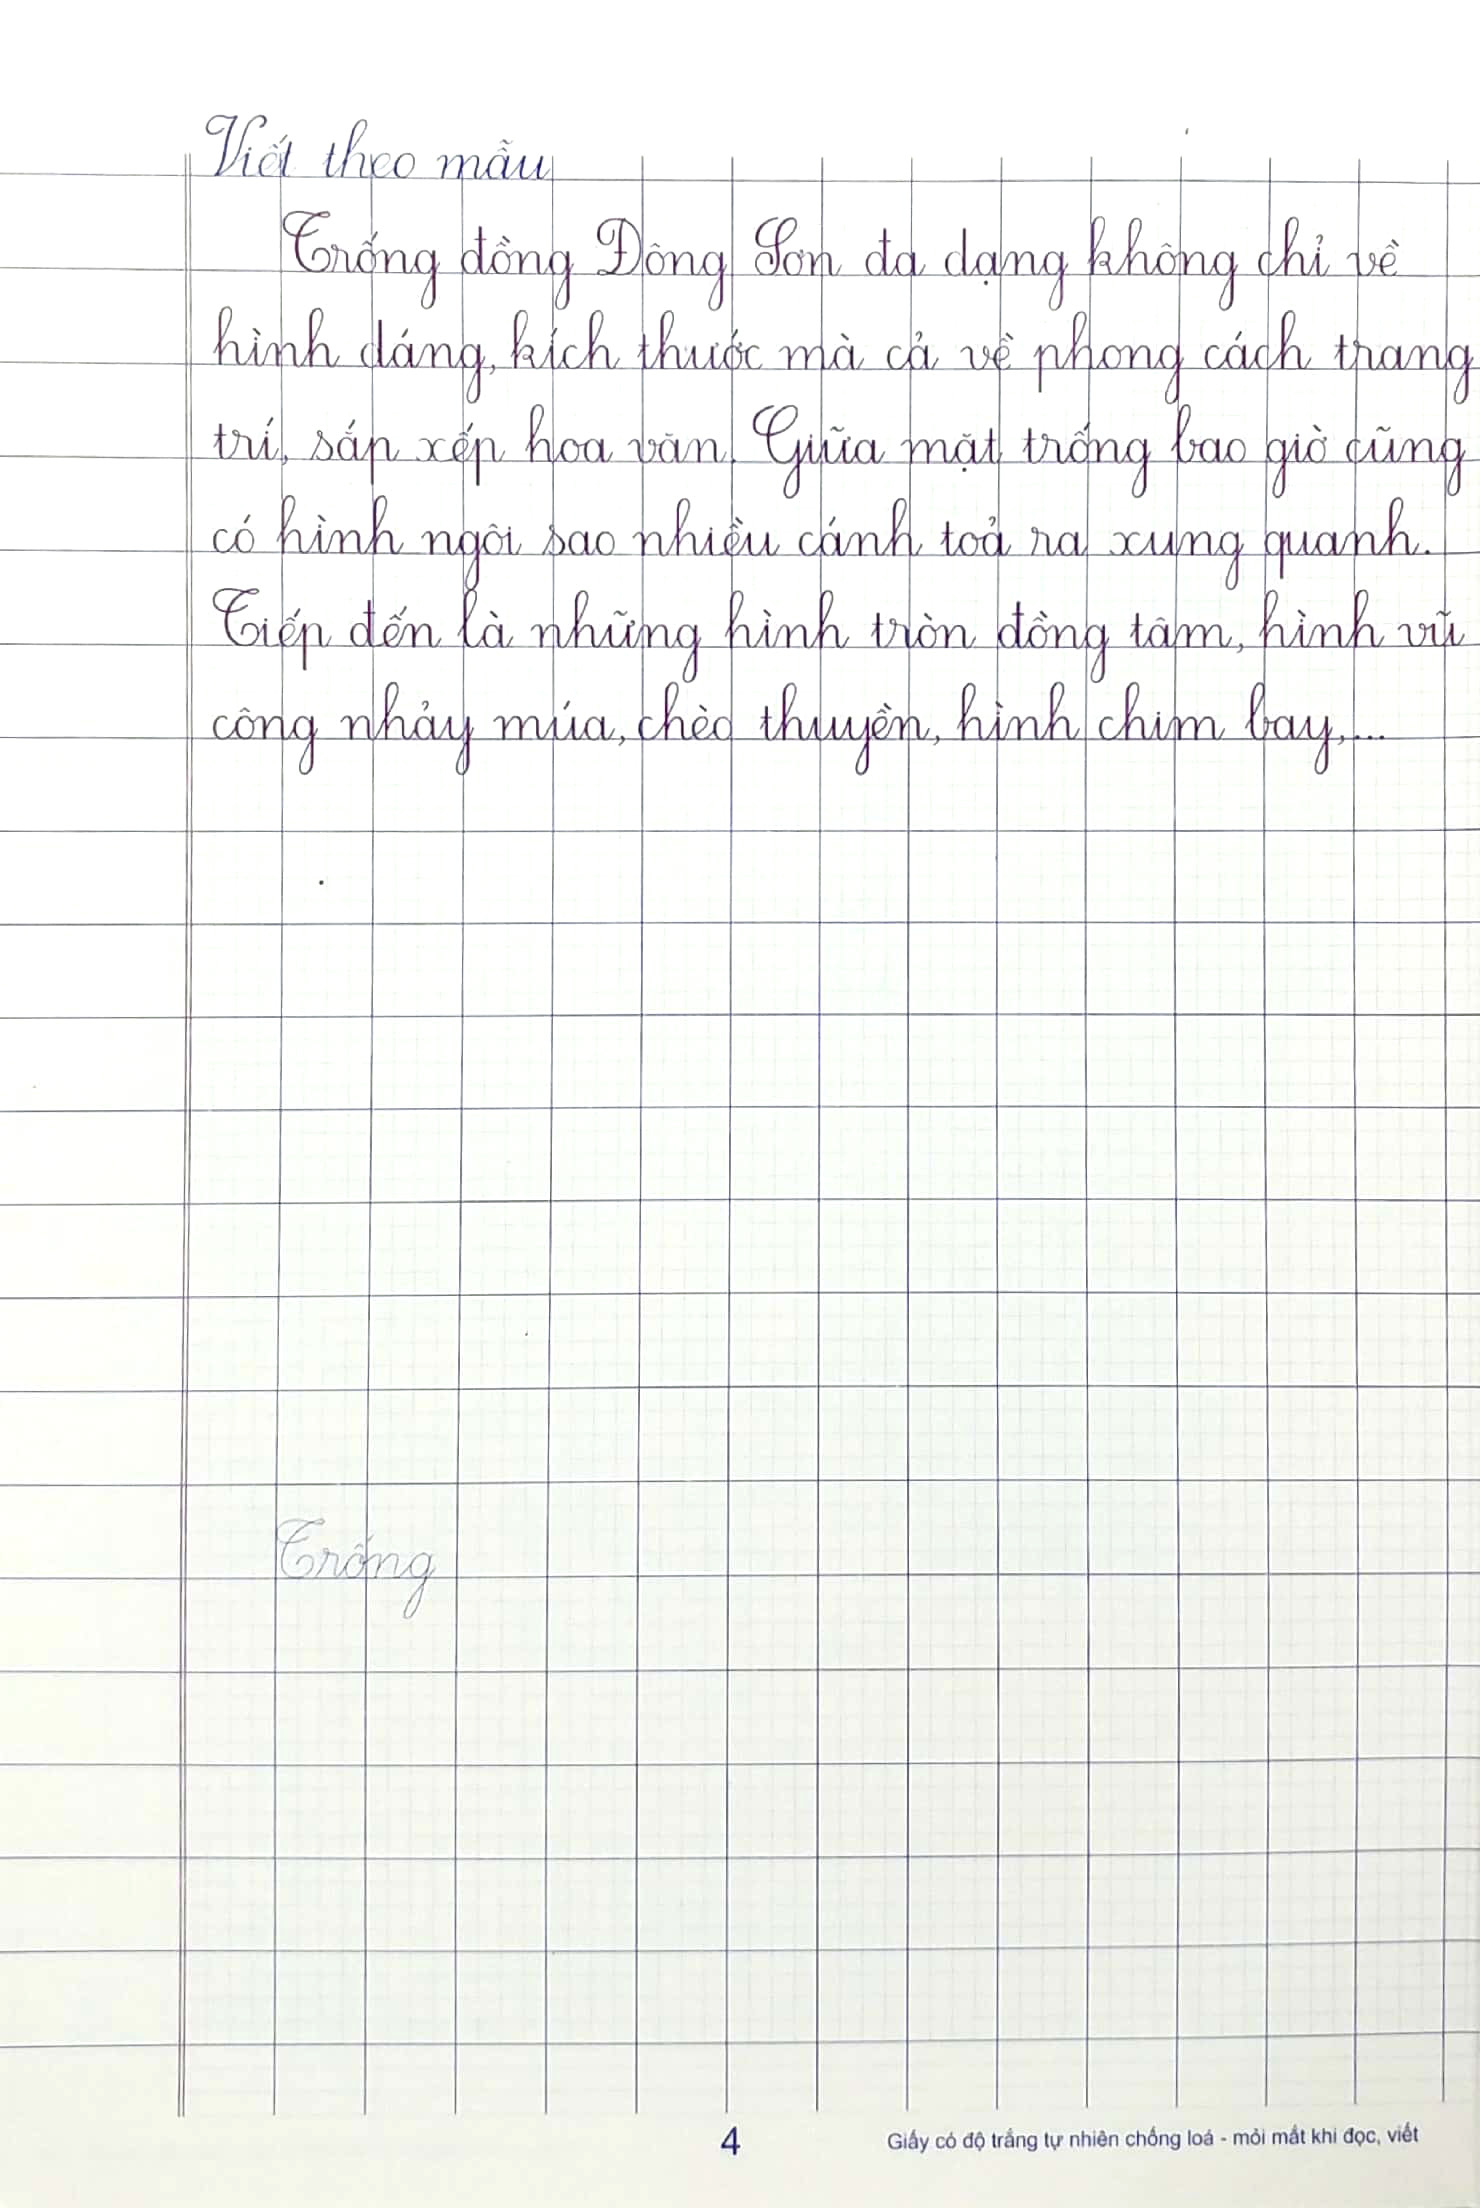 Viết theo mẫu
Trống đồng Đông Sơn đa dạng không chỉ về
hình dáng, kích thước mà cả về phong cách trang
trí, sắp xếp hoa văn. Giữa mặt trống bao giờ cũng
có hình ngôi sao nhiều cánh toả ra xung quanh.
Tiếp đến là những hình tròn đồng tâm, hình vũ
công nhảy múa, chèo thuyền, hình chim bay,...
Trống
4
Giấy có độ trắng tự nhiên chống loá - mỏi mắt khi đọc, viết